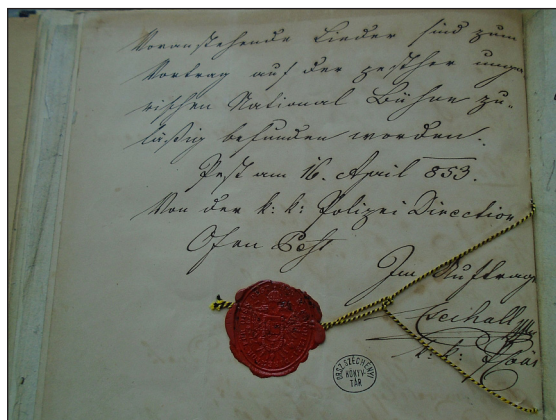 Voranstehende Lieder sind zum
Vortrag auf der pesther unga
rischen National Bühne zu-
läßig befunden worden.
Pest am 16. April 853.
Von der k: k: Polizei Direction
Ofen Pest
Im Auftrage
k: k:
ORSZ. SZÉCHÉNYI
KÖNYV-
TÁR